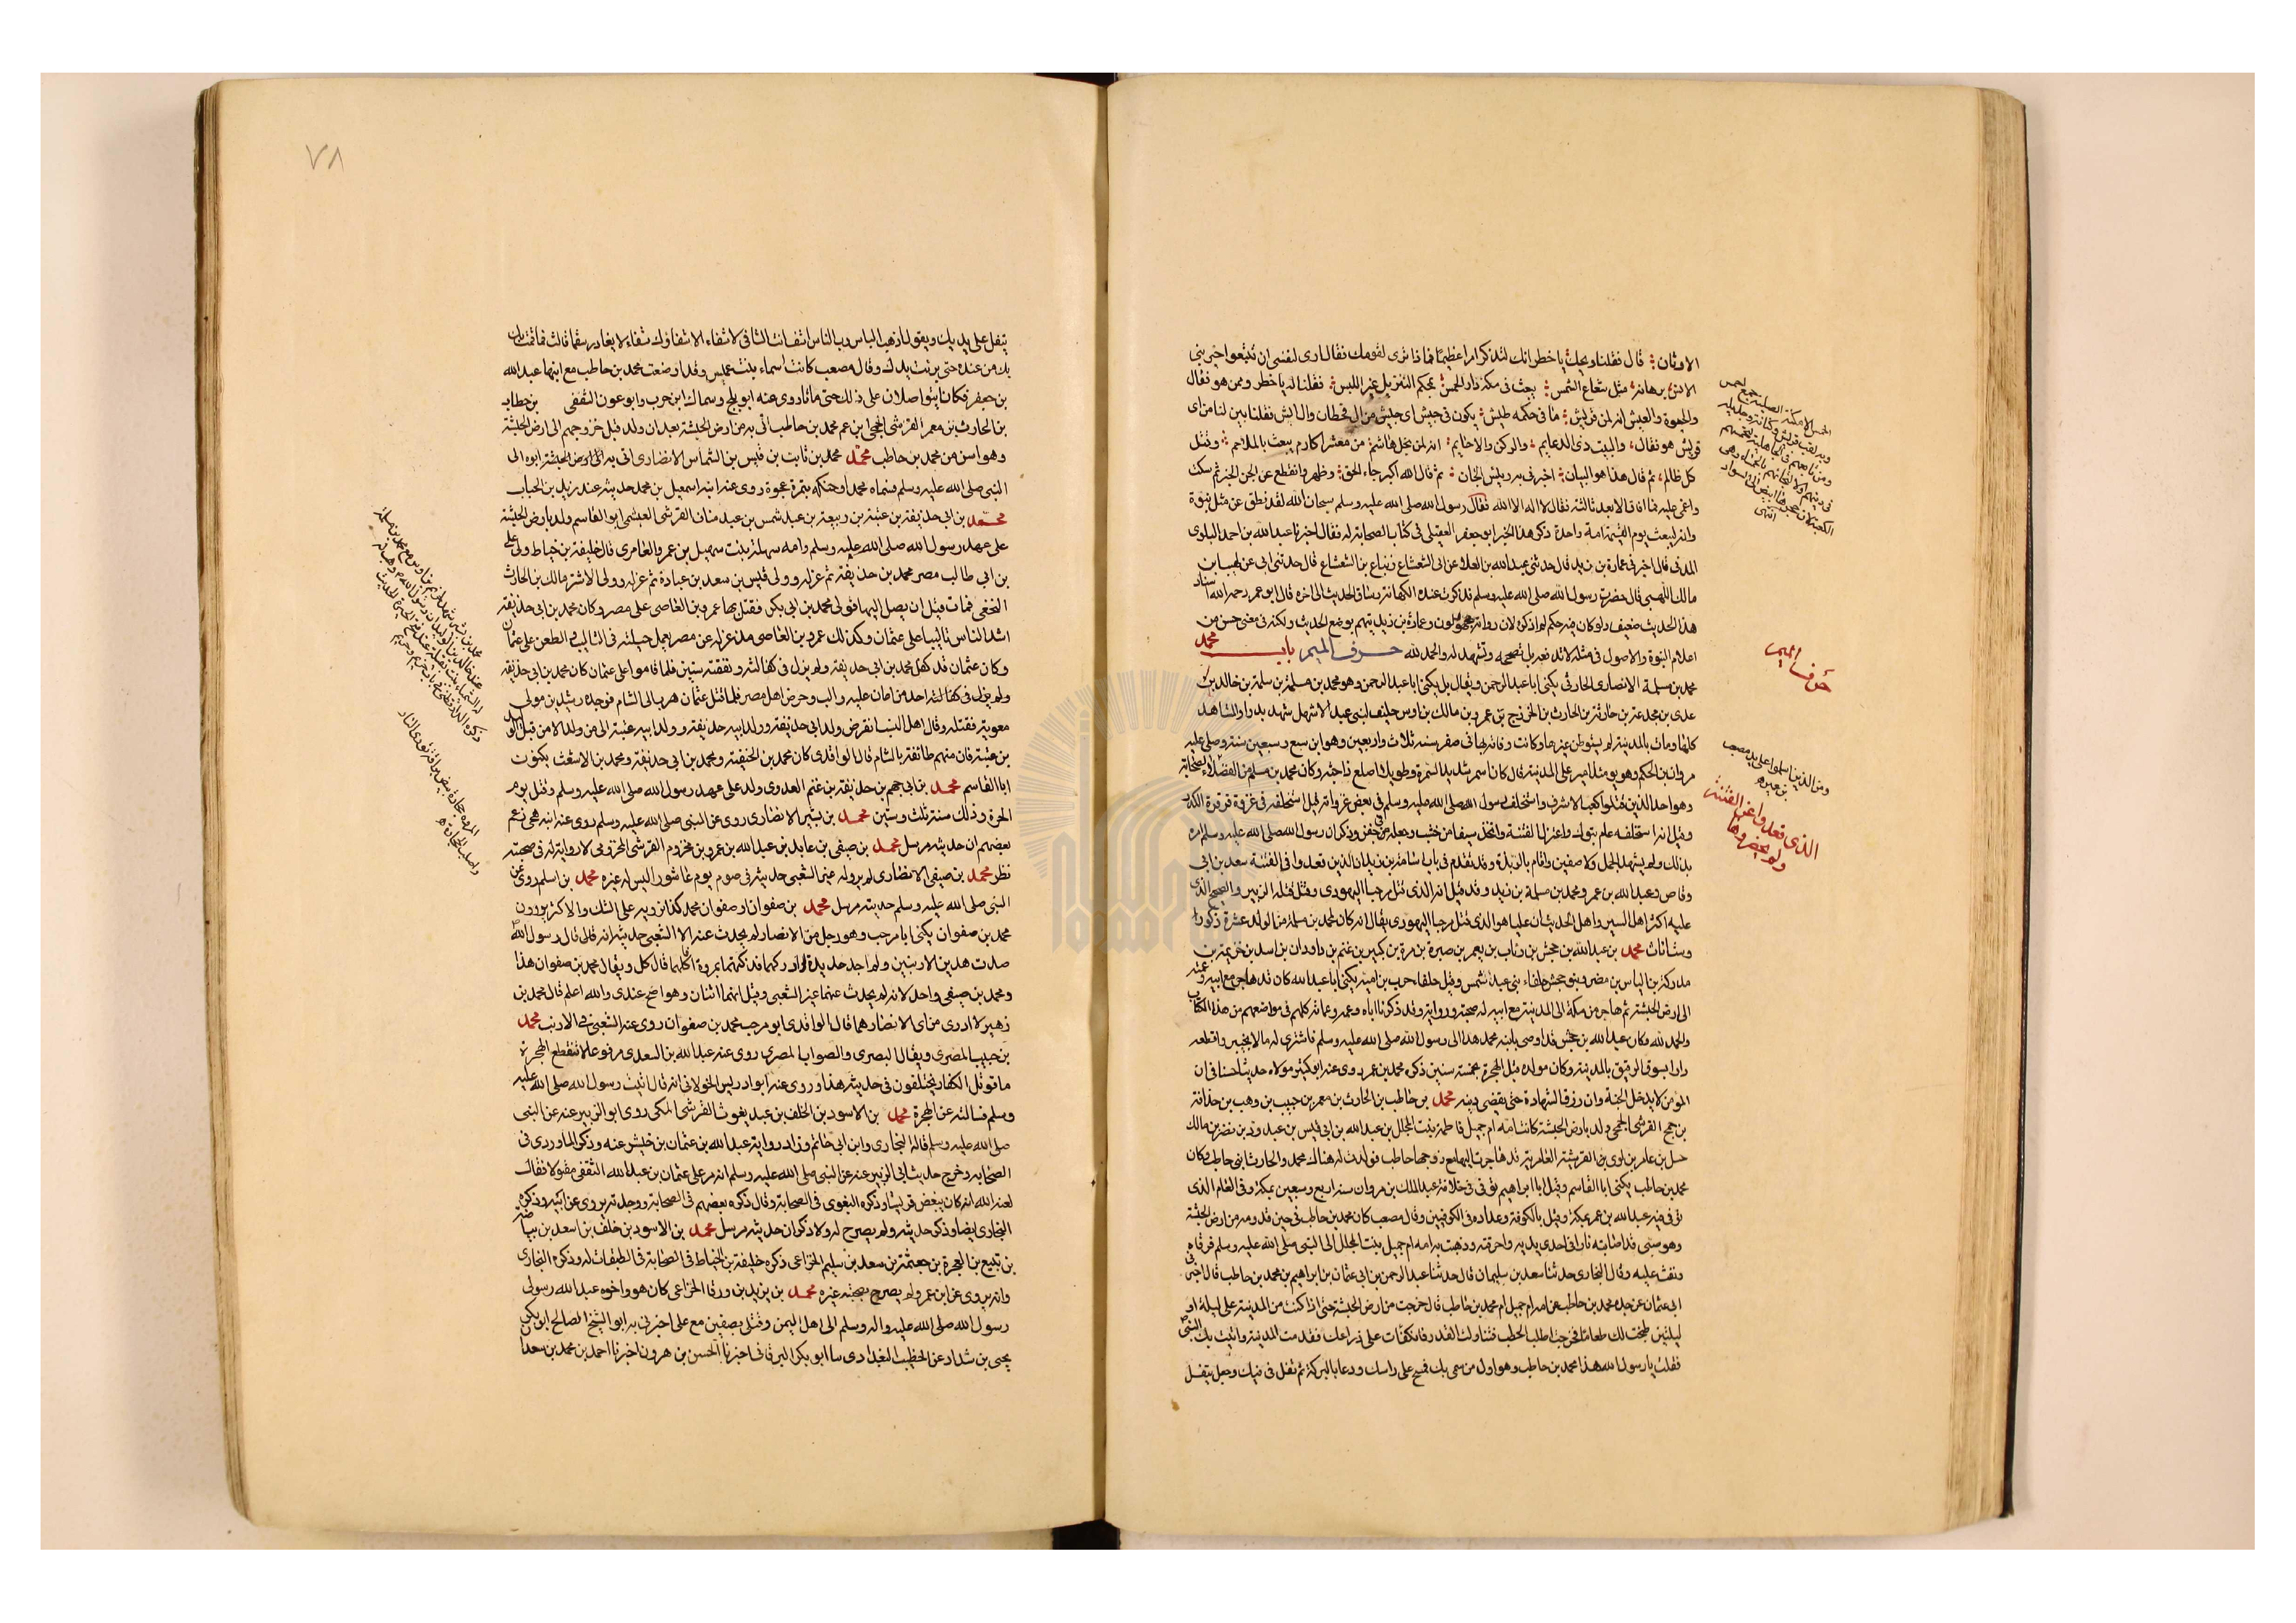 الاوثان قال فقلنا ويحك يا خطر انك لتذكر امرا عظيما فماذا ترى لقومك فقال ارى لنفسى ان تتبعوا خير بنى
الانس برهانه مثل شعاع الشمس يبعث فى مكة دار الحمس بمحكم التنزيل غير اللبس فقلنا له يا خطر وممن هو فقال
والحيوة والعيش انه لمن قريش ما فى حكمه طيش يكون فى جيش اى جيش من ال قحطان وال ايش فقلنا بين لنا من اى
قريش هو فقال والبيت ذى الدعايم والركن والاحايم انه لمن نجل هاشم من معشر اكارم يبعث بالملاحم وقتل
كل ظالم ثم قال هذا هو البيان اخبرنى به رييس الجان ثم قال الله اكبر جاء الحق وظهر وانقطع عن الجن الخبر ثم سكت
واغمى عليه فما افاق الا بعد ثالثة فقال لا اله الا الله فقال رسول الله صلى الله عليه وسلم سبحان الله لقد نطق عن مثل نبوة
وانه ليبعث يوم القيمة امة واحدة ذكر هذا الخبر ابو جعفر العقيلى فى كتاب الصحابة له فقال اخبرنا عبد الله بن احمد البلوى
المدنى قال اخبرنى عمارة بن زيد قال حدثنى عبد الله بن العلاء عن ابى الشعشاع زنباع بن الشعشاع قال حدثنى ابى عن لهيب ابن
مالك اللهبى قال حضرت رسول الله صلى الله عليه وسلم فذكرت عنده الكهانة وساق الحديث الى اخره قال ابو عمر رحمه الله اسناد
هذا الحديث ضعيف ولو كان فيه حكم لم اذكره لان رواته مجهولون وعمارة بن زيد يتهم بوضع الحديث ولكنه فى معنى حسن من
اعلام النبوة والاصول فى مثله لا تدفعه بل تصححه وتشهد له والحمد لله حرف الميم باب محمد
محمد بن مسلمة الانصارى الحارثى يكنى ابا عبد الرحمن ويقال بل يكنى ابا عبد الرحمن وهو محمد بن مسلمة بن سلمة بن خالد بن
عدى بن مجدعة بن حارثة بن الحارث بن الخزرج بن عمرو بن مالك بن اوس حليف لبنى عبد الاشهل شهد بدرا والمشاهد
كلها ومات بالمدينة لم يستوطن غيرها وكانت وفاته بها فى صفر سنة ثلاث واربعين وهو ابن سبع وسبعين سنة وصلى عليه
مروان بن الحكم وهو يومئذ امير على المدينة قال كان اسمر شديد السمرة وطويلا اصلع ذا جثة وكان محمد بن مسلم من الفضلاء الصحابة
وهو احد الذين قتلوا كعب بن الاشرف واستخلفه رسول الله صلى الله عليه وسلم فى بعض غزواته قيل استخلفه فى غزوة قرقرة الكدر
وقيل انه استخلفه عام تبوك واعتزل الفتنة واتخذ سيفا من خشب وجعله فى جفن وذكر ان رسول الله صلى الله عليه وسلم امره
بذلك ولم يشهد الجمل ولا صفين واقام بالربذة وقد تقدم فى باب اسامة بن زيد ان الذين قعدوا فى الفتنة سعد بن ابى
وقاص وعبد الله بن عمر ومحمد بن مسلمة بن زيد وقد قيل انه الذى قتل مرحبا اليهودى وقتل قتله الزبير والصحيح الذى
عليه اكثر اهل السير واهل الحديث ان عليا هو الذى قتل مرحبا اليهودى يقال انه كان لمحمد بن مسلمة من الولد عشرة ذكورا
وست اناث محمد بن عبد الله بن جحش بن رئاب بن يعمر بن صبرة بن مرة بن كبير بن غنم بن داودان بن اسد بن خزيمة بن
مدركة بن الياس بن مضر وبنو جحش حلفاء بنى عبد شمس وقيل حلفاء حرب بن امية يكنى ابا عبد الله كان قد هاجر مع ابيه وعمه
الى ارض الحبشة ثم هاجر من مكة الى المدينة مع ابيه له صحبة ورواية وقد ذكرنا اباه وعمه وعماته كلهم فى مواضعهم من هذا الكتاب
والحمد لله وكان عبد الله بن جحش قد اوصى بابنه محمد هذا الى رسول الله صلى الله عليه وسلم فاشترى له مالا بخيبر واقطعه
دارا بسوق الرقيق بالمدينة وكان مولده قبل الهجرة بخمسة سنين ذكره محمد بن عمر يروى عنه ابو كثير مولاه حديثا حسنا فى ان
المؤمن لا يدخل الجنة وان رزق الشهادة حتى يقضى دينه محمد بن حاطب بن الحارث بن معمر بن حبيب بن وهب بن حذافة
بن جمح القرشى الجمحى ولد بارض الحبشة كانت امه ام جميل فاطمة بنت المجلل بن عبد الله بن ابى قيس بن عبد ود بن نضر بن مالك
حسل بن عامر بن لوى بن القرشية العامرية قد هاجرت اليها مع زوجها حاطب فولدت له هناك محمد والحارث ابنى حاطب وكان
محمد بن حاطب يكنى ابا القاسم وقيل ابا ابراهيم توفى فى خلافة عبد الملك بن مروان سنة اربع وسبعين بمكة وفى العام الذى
توفى فيه عبد الله بن عمر بمكة وقيل بالكوفة وعداده فى الكوفيين وقال مصعب كان محمد بن حاطب فى حين قدومه من ارض الحبشة
وهو صبى قد اصابته نار فى احدى يديه واحرقته وذهبت به امه ام جميل بنت المجلل الى النبى صلى الله عليه وسلم فرقاه
ونفث عليه وقال البخارى حدثنا سعد بن سليمان قال حدثنا عبد الرحمن بن ابى عثمان بن ابراهيم بن محمد بن حاطب قال اخبرنى
ابى عثمان عن جده محمد بن حاطب عن امه ام جميل ام محمد بن حاطب قال خرجت من ارض الحبشة حتى اذا كنت من المدينة على ليلة او
ليلتين طبخت لك طعاما فخرجت اطلب الحطب فتناولت القدر فانكفات على ذراعك فقدمت المدينة واتيت بك النبى
فقلت يا رسول الله هذا محمد بن حاطب وهو اول من سمى بك فمسح على راسك ودعا بالبركة ثم تفل فى فيك وجعل يتفل
حرف الميم
ومن الذين اسلموا على يد مصعب
بن عمير
الذى قعدوا عن الفتنة
ولم يحضروها
٧٨
يتفل على يديك ويقول اذهب الباس رب الناس اشف انت الشافى لا شفاء الا شفاؤك شفاء لا يغادر سقما قالت فما قمت
بك من عنده حتى برئت يدك وقال مصعب كانت اسماء بنت عميس وقد ارضعت محمد بن حاطب مع ابنها عبد الله
بن جعفر فكانا يتواصلان على ذلك حتى ماتا روى عنه ابو بلج وسماك ابن حرب وابو عون الثقفى بن حطاب
بن الحارث بن معمر القرشى الجمحى ابن عم محمد بن حاطب اتى به من ارض الحبشة بعد ان ولد قبل خروجهم الى ارض الحبشة
وهو اسن من محمد بن حاطب محمد محمد بن ثابت بن قيس بن الشماس الانصارى اتى به ابوه الى
النبى صلى الله عليه وسلم فسماه محمدا وحنكه بتمرة عجوة روى عنه ابنه اسمعيل بن محمد حديثه عند زيد بن الحباب
محمد بن ابى حذيفة بن عتبة بن ربيعة بن عبد شمس بن عبد مناف القرشى العبشمى ابو القاسم ولد بارض الحبشة
على عهد رسول الله صلى الله عليه وسلم وامه سهلة بنت سهيل بن عمرو العامرى قال خليفة بن خياط ولى على
بن ابى طالب مصر محمد بن حذيفة ثم عزله وولى قيس بن سعد بن عبادة ثم عزله وولى الاشتر مالك بن الحارث
النخعى فمات قبل ان يصل اليها فولى محمد بن ابى بكر فقتل بها عمرو بن العاصى على مصر وكان محمد بن ابى حذيفة
اشد الناس تاليبا على عثمان وكذلك عمرو بن العاصى مذ عزله عن مصر يعمل حيلته فى التاليب والطعن على عثمان
وكان عثمان قد كفل محمد بن ابى حذيفة ولم يزل فى كفالته ونفقته سنين فلما قاموا على عثمان كان محمد بن ابى حذيفة
احد من اعان عليه والب وحرض اهل مصر فلما قتل عثمان هرب الى الشام فوجده رشدين مولى
معوية فقتله وقال اهل النسب انقرض ولد ابى حذيفة وولد ابيه عتبة الا من قبل الوليد
بن عتبة فان منهم طائفة بالشام قال الواقدى كان محمد بن الحنفية ومحمد بن ابى حذيفة ومحمد بن الاشعث يكنون
ابا القاسم محمد بن ابى جهم بن حذيفة بن غنم العدوى ولد على عهد رسول الله صلى الله عليه وسلم وقتل يوم
الحرة وذلك سنة ثلث وستين محمد بن بشير الانصارى روى عن النبى صلى الله عليه وسلم روى عنه ابنه يحيى زعم
بعضهم ان حديثه مرسل محمد بن صيفى بن عابد بن عبد الله بن عمرو بن مخزوم القرشى المخزومى لا رواية له فى صحبته
نظر محمد بن صيفى الانصارى لم يرو له غير الشعبى حديثه فى صوم يوم عاشورا ليس له غيره محمد بن اسلم روى عن
النبى صلى الله عليه وسلم حديثه مرسل محمد بن صفوان او صفوان محمد كذا تروى على الشك والاكثر يروون
محمد بن صفوان يكنى ابا مرحب وهو رجل من الانصار لم يحدث عنه الا الشعبى حديثه انه قال قال رسول الله
صدت هذين الارنبين ولم اجد حديدة اذكيهما فذكيتهما بمروة اكلهما قال كل ويقال محمد بن صفوان هذا
ومحمد بن صيفى واحد لانه لم يحدث عنهما غير الشعبى وقيل انهما اثنان وهو اصح عندى والله اعلم قال محمد بن
زهير لا ادرى من اى الانصار هما قال الواقدى ابو مرحب محمد بن صفوان روى عنه الشعبى فى الارنب محمد
بن حبيب المصرى ويقال البصرى والصواب المصرى روى عنه عبد الله بن السعدى مرفوعا لا تنقطع الهجرة
ما قوتل الكفار يختلفون فى حديثه هذا وروى عنه ابو ادريس الخولانى انه قال اتيت رسول الله صلى الله عليه
وسلم فسالته عن الهجرة محمد بن الاسود بن الخلف بن عبد يغوث القرشى المكى روى ابو الزبير عنه عن النبى
صلى الله عليه وسلم قاله البخارى وابن ابى حاتم وزاد رواية عبد الله بن عثمان بن خيثم عنه وذكر الماوردى فى
الصحابة وخرج حديث ابى الزبير عنه عن النبى صلى الله عليه وسلم انه مر على عثمان بن عبد الله الثقفى مقتولا فقال
لعنه الله انه كان يبغض قريشا وذكره البغوى فى الصحابة وقال ذكره بعضهم فى الصحابة ووجدته يروى عن ابيه وذكره
البخارى ايضا وذكر حديثه ولم يصرح له ولا ذكر ان حديثه مرسل محمد بن الاسود بن خلف بن اسعد بن بياضة
بن سبيع بن جعثمة بن سعد بن مليح الخزاعى ذكره خليفة بن الخياط فى الصحابة فى الطبقات له وذكره البخارى
وانه يروى عن ابن عمر ولم يصرح بصحبته غيره محمد بن يزيد بن ورقا الخزاعى كان هو واخوه عبد الله رسولى
رسول الله صلى الله عليه واله وسلم الى اهل اليمن وقتل بصفين مع على اخبرنى به ابو الشيخ الصالح ابو بكر
يحيى بن شداد عن الخطيب البغدادى نا ابو بكر البرقانى اخبرنا الحسن بن هرون اخبرنا احمد بن محمد بن سعدا